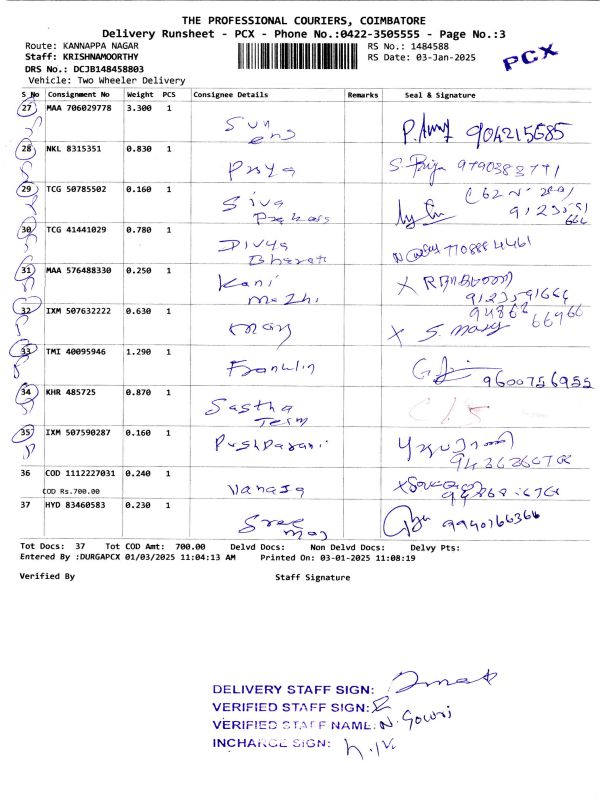 THE PROFESSIONAL COURIERS, COIMBATORE
Delivery Runsheet - PCX - Phone No.:0422-3505555 - Page No.:3
Route: KANNAPPA NAGAR
RS No.: 1484588
PCX
Staff: KRISHNAMOORTHY
RS Date: 03-Jan-2025
DRS No.: DCJB148458803
Vehicle: Two Wheeler Delivery
S No Consignment No Weight PCS Consignee Details Remarks Seal & Signature
27 MAA 706029778 3.300 1
Sun
28 NKL 8315351 0.830 1
Priya S. Priya 9790383791
29 TCG 50785502 0.160 1
Siva
30 TCG 41441029 0.780 1
Divya
Bharati
31 MAA 576488330 0.250 1
Kani
Mozhi
9123591666
32 IXM 507632222 0.630 1
Mary X S. Mary
33 TMI 40095946 1.290 1
Franklin
9600756955
34 KHR 485725 0.870 1
Sastha
Team
35 IXM 507590287 0.160 1
36 COD 1112227031 0.240 1
COD Rs.700.00
Vanaja
37 HYD 83460583 0.230 1
Sree 9940166366
Tot Docs: 37 Tot COD Amt: 700.00 Delvd Docs: Non Delvd Docs: Delvy Pts:
Entered By :DURGAPCX 01/03/2025 11:04:13 AM Printed On: 03-01-2025 11:08:19
Verified By Staff Signature
DELIVERY STAFF SIGN:
VERIFIED STAFF SIGN:
VERIFIED STAFF NAME: N. Gowri
INCHARGE SIGN: